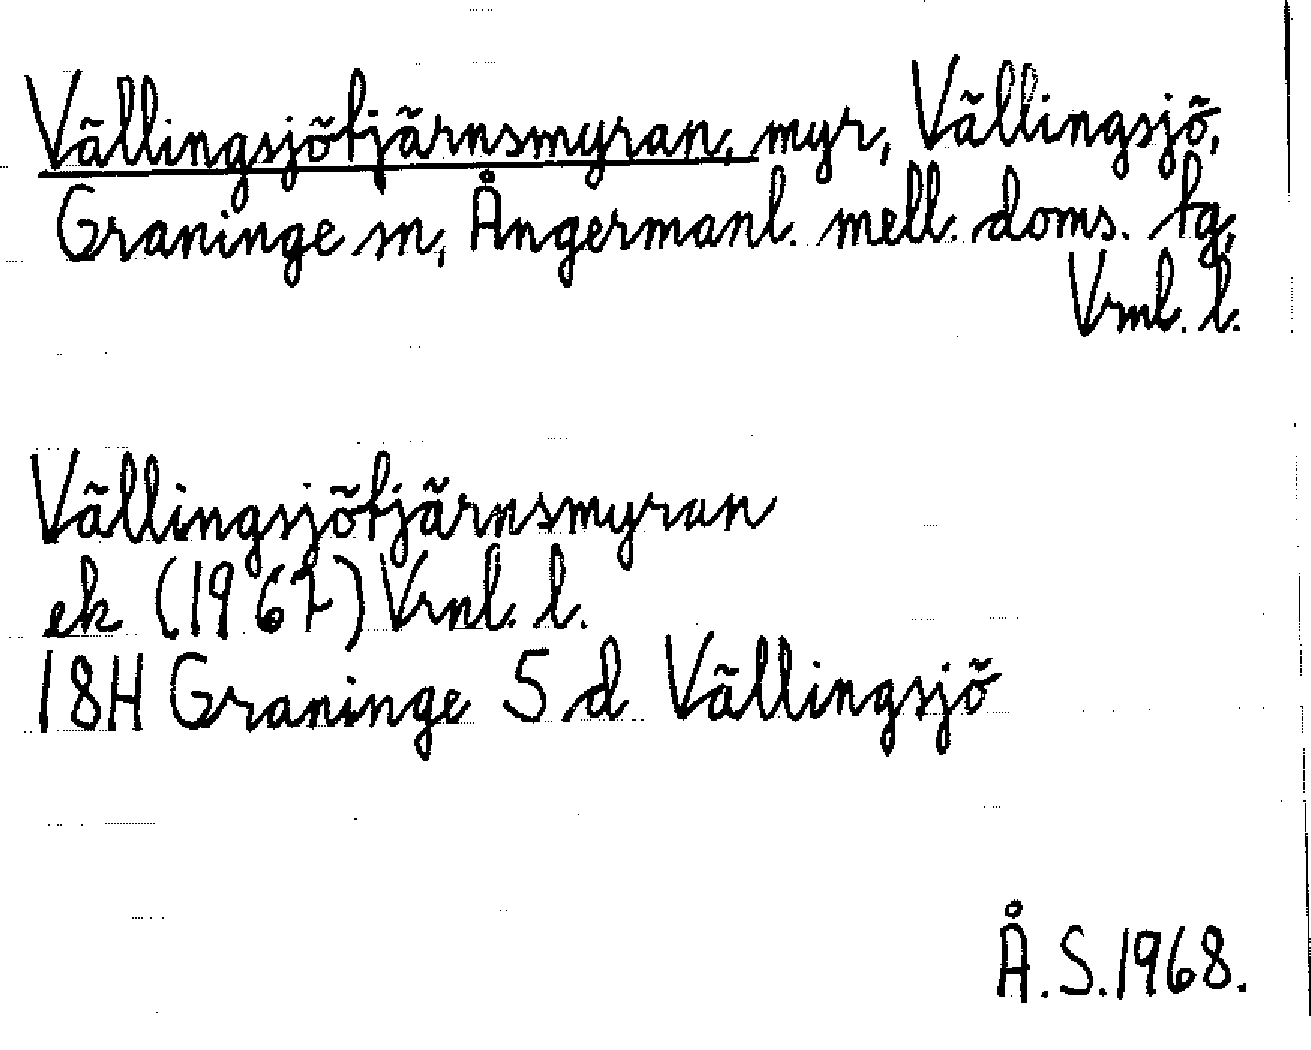 Vällingsjötjärnsmyran, myr, Vällingsjö,
Graninge sn, Ångermanl. mell. doms. tg,
Vrnl. l.
Vällingsjötjärnsmyran
ek (1967) Vrnl. l.
18H Graninge 5 d Vällingsjö
Å.S.1968.